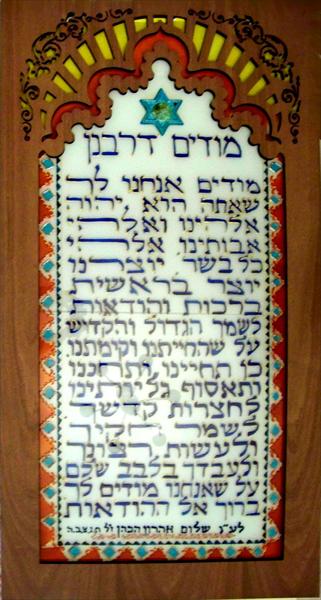 מודים דרבנן
מודים אנחנו לך
שאתה הוא יהוה
אלהינו ואלהי
אבותינו אלהי
כל בשר יוצרנו
יוצר בראשית
ברכות והודאות
לשמך הגדול והקדוש
על שהחייתנו וקימתנו
כן תחיינו ותחננו
ותאסוף גליותינו
לחצרות קדשך
לשמר חקיך
ולעשות רצונך
ולעבדך בלבב שלם
על שאנחנו מודים לך
ברוך אל ההודאות
לע״נ שלום אהרון הכהן ז״ל תנצב״ה